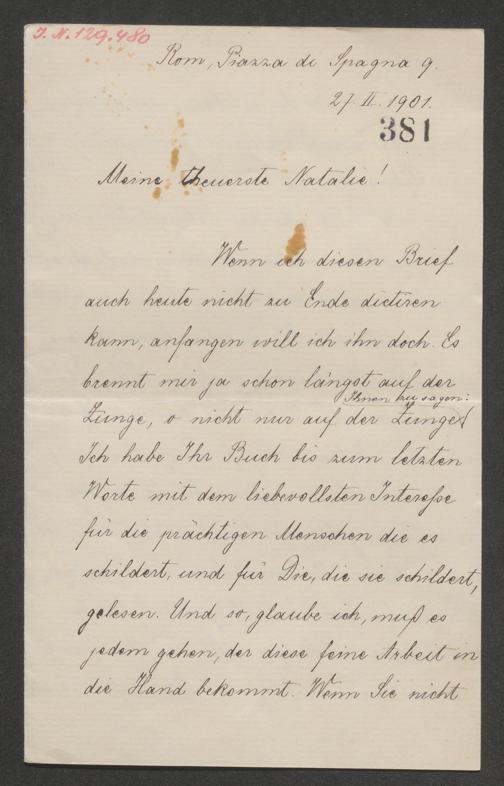 I. N. 129.480
Rom, Piazza di Spagna 9.
27. II. 1901.
381
Meine theuerste Natalie!
Wenn ich diesen Brief
auch heute nicht zu Ende dictiren
kann, anfangen will ich ihn doch. Es
brennt mir ja schon längst auf der
Ihnen zu sagen:
Zunge, o nicht nur auf der Zunge
Ich habe Ihr Buch bis zum letzten
Worte mit dem liebevollsten Intereße
für die prächtigen Menschen die es
schildert, und für Die, die sie schildert,
gelesen. Und so, glaube ich, muß es
jedem gehen, der diese feine Arbeit in
die Hand bekommt. Wenn Sie nicht